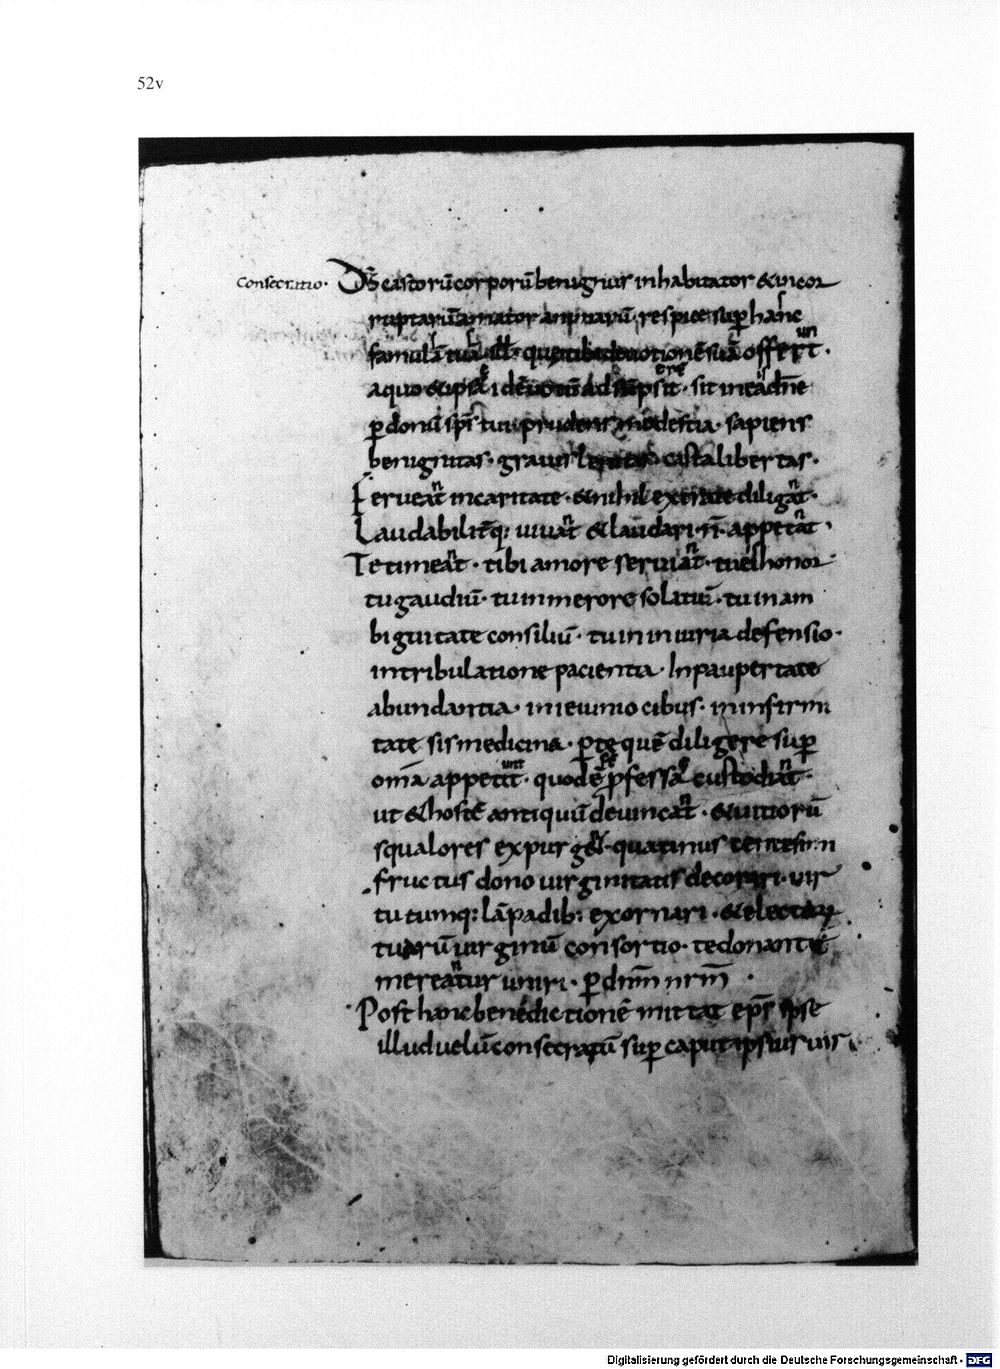 52v
Consecratio· D̄s castorū corporū benignus inhabitator & incor
ruptarū amator animarū respice sup hanc
famulā tuā ill· que tibi devotionē suā offert·
a quo & ipsa idē votū adsūpsit· sit in ea dn̄e
p donū sps̄ tui prudens modestia· sapiens
benignitas· gravis lenitas· casta libertas·
Ferveat in caritate· & nihil extra te diligat·
Laudabilit̄q; vivat & laudari n̄ appetat·
Te timeat· tibi amore serviat· tu ei sis honor
tu gaudiū· tu in merore solatiū· tu in am
biguitate consiliū· tu in iniuria defensio·
in tribulatione pacientia· In paupertate
abundantia· in ieiunio cibus· in infirmi
tate sis medicina· p te quē diligere sup
om̄a appetit· quod ē pfessa custodiat·
ut & hostē antiquū devincat· & vitiorū
squalores expurget· quatinus centesim
fructus dono virginitatis decorari· vir
tutumq; lāpadib; exornari· & electarū
tuarū virginū consortio· te donante
mereatur uniri· p dnm̄ nrm̄
Post hanc benedictionē mittat ep̄s ipse
illud velū consecratū sup caput ipsius vir
Digitalisierung gefördert durch die Deutsche Forschungsgemeinschaft - DFG